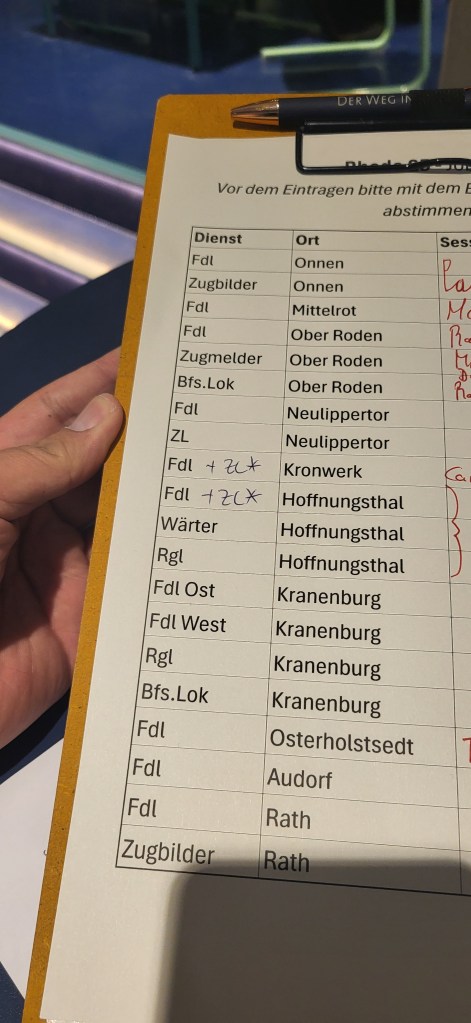 DER WEG IN
Vor dem Eintragen bitte mit dem
abstimmen
Dienst Ort
Fdl Onnen
Zugbilder Onnen
Fdl Mittelrot
Fdl Ober Roden
Zugmelder Ober Roden
Bfs.Lok Ober Roden
Fdl Neulippertor
ZL Neulippertor
Fdl + ZL* Kronwerk
Fdl + ZL* Hoffnungsthal
Wärter Hoffnungsthal
Rgl Hoffnungsthal
Fdl Ost Kranenburg
Fdl West Kranenburg
Rgl Kranenburg
Bfs.Lok Kranenburg
Fdl Osterholstsedt
Fdl Audorf
Fdl Rath
Zugbilder Rath